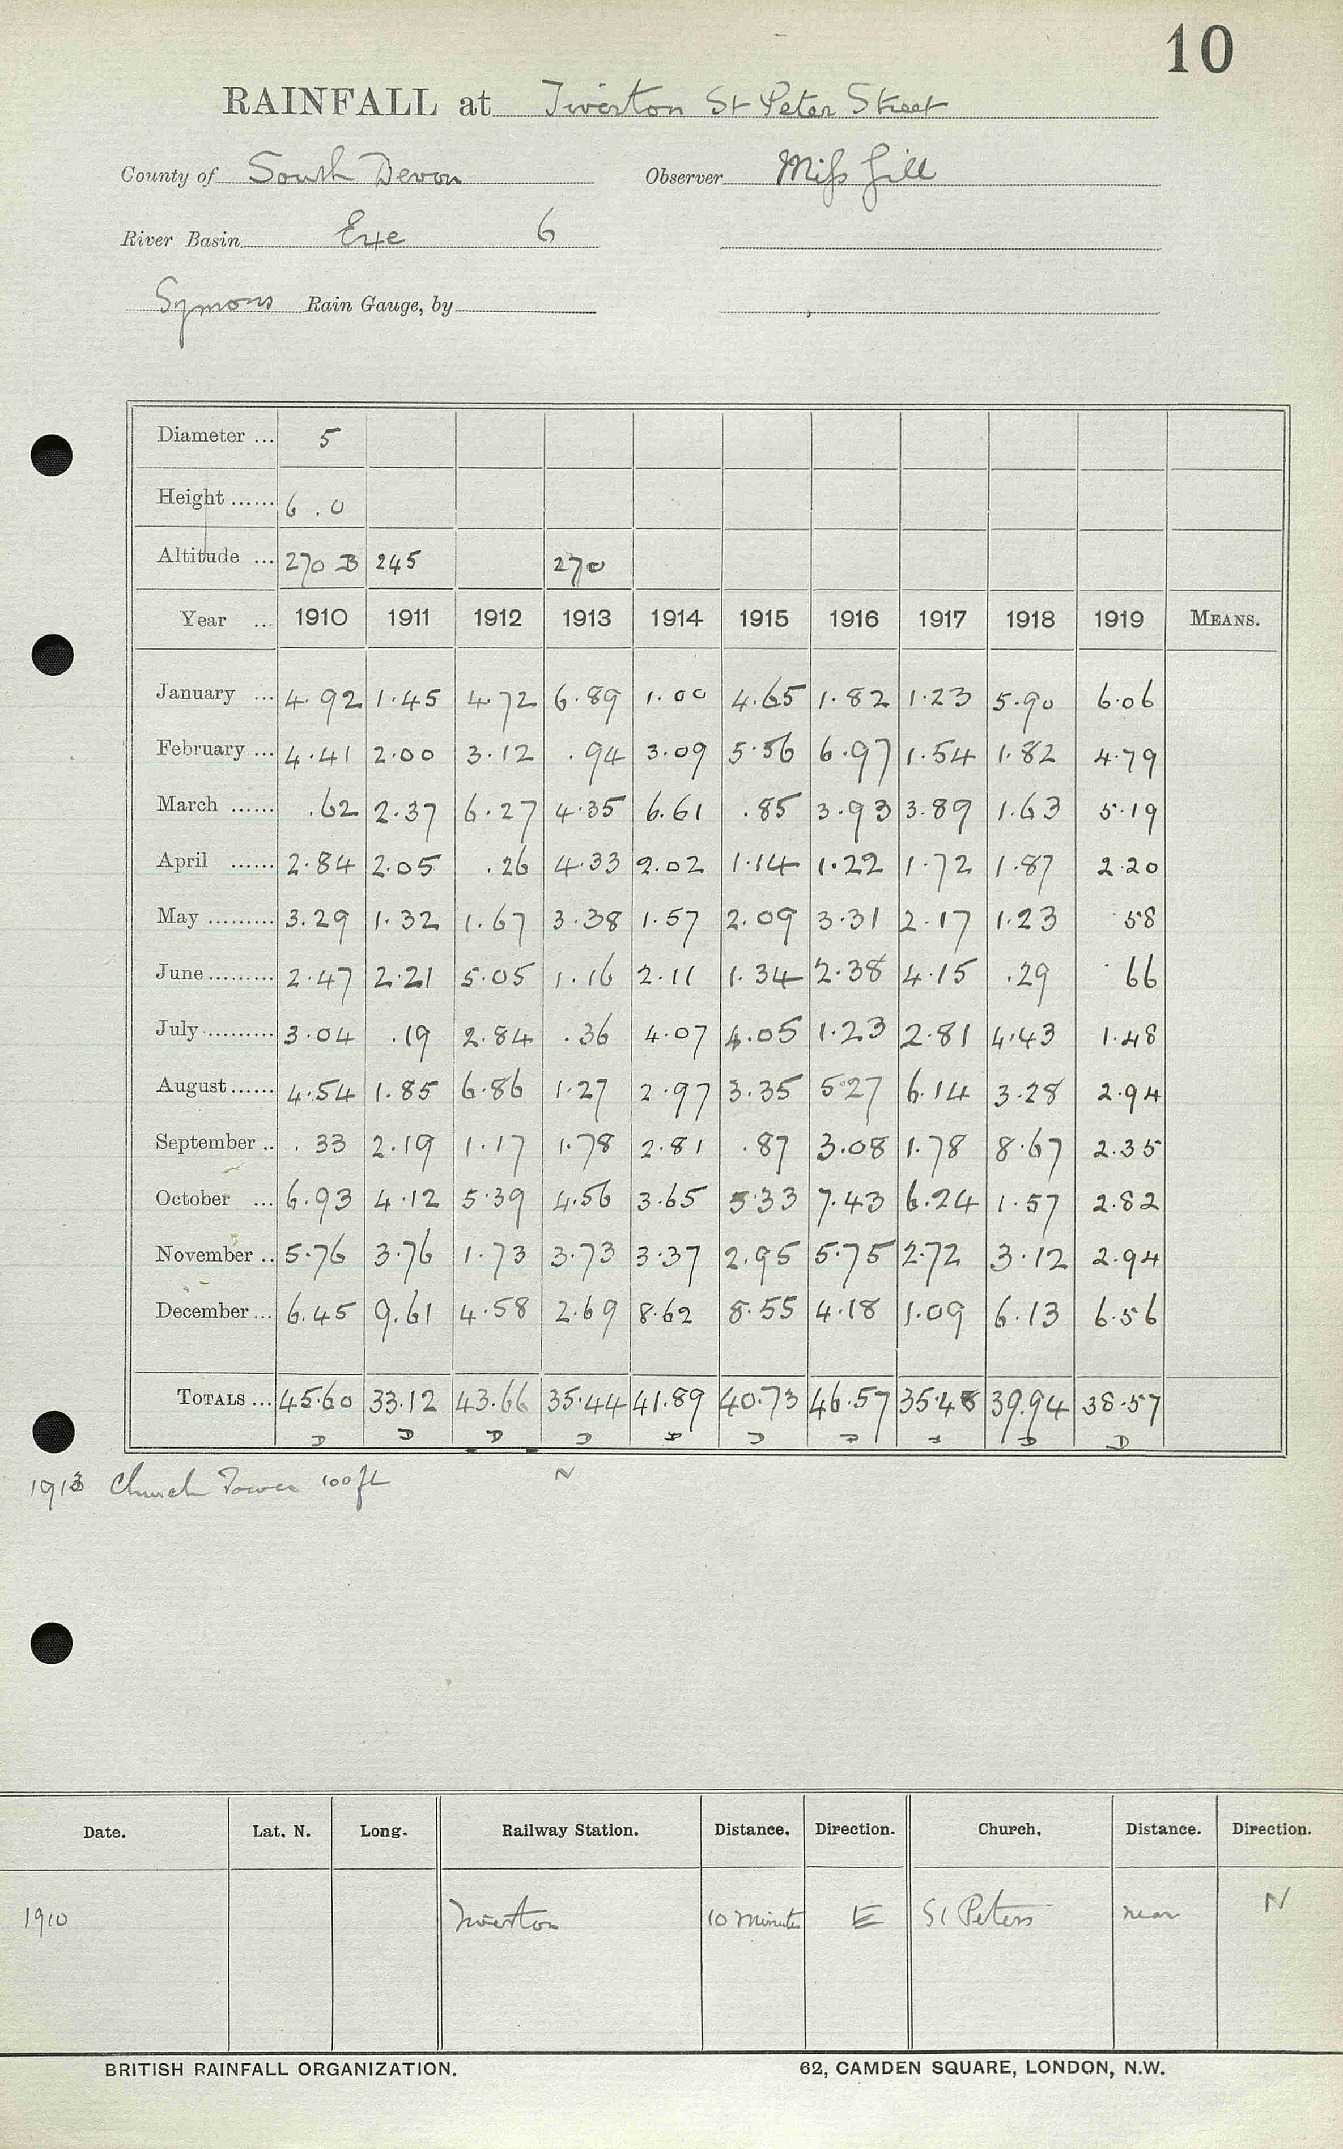 10
RAINFALL at Tiverton St Peter Street
County of South Devon Observer Miss Gill
River Basin Exe 6
Symons Rain Gauge, by
Diameter ... 5
Height ...... 6 . 0
Altitude ... 270 B 245 270
Year ... 1910 1911 1912 1913 1914 1915 1916 1917 1918 1919 MEANS.
January ... 4.92 1.45 4.72 6.89 1.00 4.65 1.82 1.23 5.90 6.06
February ... 4.41 2.00 3.12 .94 3.09 5.56 6.97 1.54 1.82 4.79
March ...... .62 2.37 6.27 4.35 6.61 .85 3.93 3.89 1.63 5.19
April ...... 2.84 2.05 .26 4.33 2.02 1.14 1.22 1.72 1.87 2.20
May ......... 3.29 1.32 1.67 3.38 1.57 2.09 3.31 2.17 1.23 .58
June ......... 2.47 2.21 5.05 1.16 2.11 1.34 2.38 4.15 .29 .66
July .......... 3.04 .19 2.84 .36 4.07 4.05 1.23 2.81 4.43 1.48
August ...... 4.54 1.85 6.86 1.27 2.97 3.35 5.27 6.14 3.28 2.94
September .. .33 2.19 1.17 1.78 2.81 .87 3.08 1.78 8.67 2.35
October ... 6.93 4.12 5.39 4.56 3.65 5.33 7.43 6.24 1.57 2.82
November .. 5.76 3.76 1.73 3.73 3.37 2.95 5.75 2.72 3.12 2.94
December ... 6.45 9.61 4.58 2.69 8.62 8.55 4.18 1.09 6.13 6.56
TOTALS ... 45.60 33.12 43.66 35.44 41.89 40.73 46.57 35.48 39.94 38.57
D D D D D D D D D D
1913 Church Tower 100 ft N
Date. Lat. N. Long. Railway Station. Distance. Direction. Church. Distance. Direction.
1910 Tiverton 10 minutes E St Peters near N
BRITISH RAINFALL ORGANIZATION. 62, CAMDEN SQUARE, LONDON, N.W.